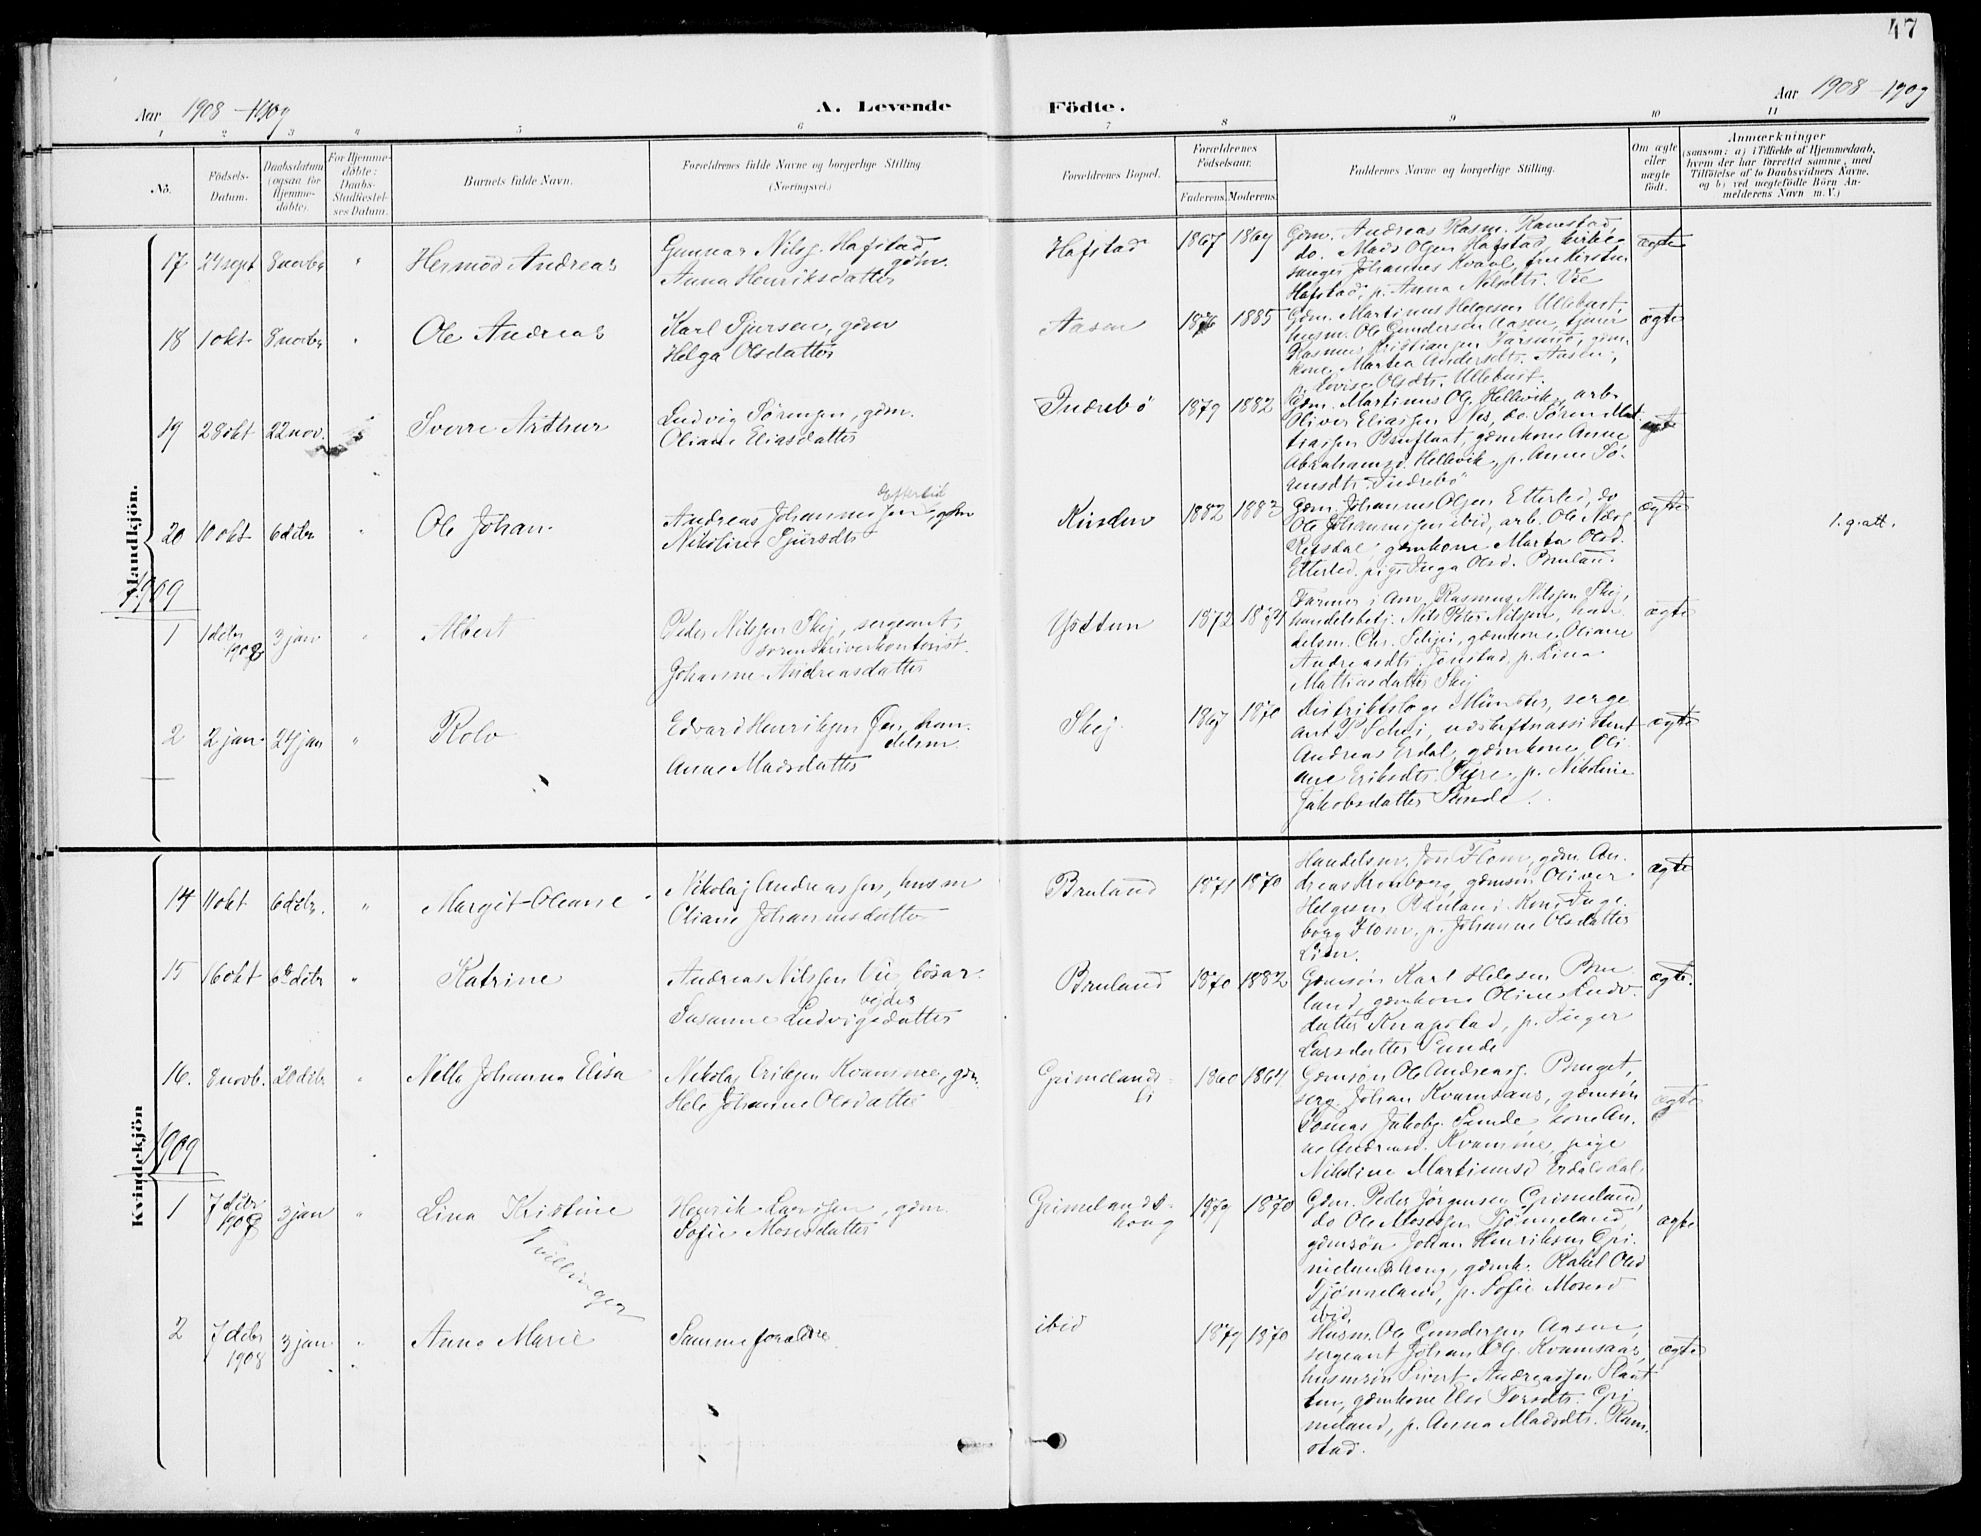 47
Aar 1908 - 1909
A. Levende Födte.
Aar 1908 - 1909
1 2 3 4 5 6 7 8 9 10 11
No.
Födsels-Datum.
Daabsdatum (ogsaa for Hjemme-döbte).
For Hjemme-döbte: Daabs-Stadfæstel-ses Datum.
Barnets fulde Navn.
Forældrenes fulde Navne og borgerlige Stilling (Næringsvei.)
Forældrenes Bopæl.
Forældrenes Födselsaar.
Faderens. Moderens.
Faddernes Navne og borgerlige Stilling.
Om ægte eller uægte födt.
Anmærkninger
(saasom: a) i Tilfælde af Hjemmedaab, hvem der har forrettet samme, med Tilföielse af to Daabsvidners Navne, og b) ved uægtefödte Börn An-melderens Navn m. V.)
Mandkjön.
17 24 sept 8 novbr " Hermod Andreas
Gunnar Nilsg. Hafstad gdm.
Anna Henriksdatter
Hafstad 1867 1869
Gdm. Andreas Rasm. Ramstad,
do. Mads Olsen Hafstad, kirke-
sanger Johannes Kvaal, fru Kirsten
Hafstad, p. Anna Nilsdtr. Vie
ægte
18 1 okt 8 novbr " Ole Andreas
Karl Tjersen, gdm
Helga Olsdatter
Aasen 1876 1885
Gdm. Martinus Helgesen Ullebust,
husm. Ole Gundersen Aasen, tjener
Rasmus Kristiansen Farsund, gdm.
kone Martha Andersdtr. Aasen,
p. Lovise Olsdtr. Ullebust.
ægte
19 28 okt 22 nov. Sverre Arthur
Ludvig Sörensen, gdm.
Oliane Eliasdatter
Indrebö 1879 1882
Gdm. Martinus Olj. Hellevik, arb.
Oliver Eliassen Nes, do. Sören Mat-
tiassen Bruflaat, gdmkone Anne
Abrahamsd. Hellevik, p. Anne Sö-
rensdtr. Indrebö
ægte
20 10 okt 6 debr " Ole Johan
Andreas Johannessen Etterlid gdm
Nikoline Tjersdtr
Kusslen 1882 1883
Gdm. Johannes Olsen Etterlid, do
Ole Johannessen ibid, arb. Ole
gdmkone Marta Olsd.
Etterled, pige Inga Olsd. Bruland.
ægte
1. g. att.
1909
1 1 debr 1908 3 jan " Albert
Peder Nilssen Skej, sergeant,
sorenskriverkontorist.
Johanne Andreasdatter
Ysttun 1872 1874
Farmer i Am. Rasmus Nilssen Skej,
handelsbetj. Nils Peter Nilssen, han-
delsm. Chr. gdmkone Oliane
Andreasdtr. Jonstad, p. Lina
Mathiasdatter Skej
ægte
2 2 jan. 24 jan " Rolv
Edvard Henriksen Öen, han-
delsm.
Anne Madsdatter
Skej 1867 1870
Distriktslæge Münster, serge
ant P. Schei, udskiftnassistent
Andreas Erdal, gdmkone Oli-
ane Eriksdtr. p. Nikoline
Jakobsdatter Sunde.
ægte
Kvindekjön
14 11 okt 6 debr. " Margit Oleane
Nikolaj Andreassen, husm
Oliane Johannesdatter
Bruland 1871 1870
Handelsm. Jon Flom, gdm. An-
dreas Kronborg, gdmsön Oliver
Helgesen Bruland. Kone Inge-
borg Flom, p. Johanne Olsdatter
Lien.
ægte
15 16 okt 6te debr " Katrine
Andreas Nilssen Vie, lösar-
bejder
Susanne Ludvigsdatter
Bruland 1870 1882
Gdmsön Karl Helgesen Bru-
land, gdmkone Oline Ludv.
datter Knapstad, p. Inger
Larsdatter Sunde
ægte.
16. 8 novb. 20 debr " Nella Johanna Elisa
Nikolaj Eriksen Kvamme, gdm.
Hele Johanne Olsdatter
Grimelands-
li
1860 1864
Gdmsön Ole Andreasg. Bruget,
serg. Johan Kvamsaas, gdmsön
Tomas Jakobg. Sunde, kone An-
ne Andreasd. Kvamme, pige
Nikoline Martinusd Erdalsdal.
ægte
1909
1 7 debr 1908 3 jan " Lina Kristine
Henrik Larsen, gdm.
Sofie Mosesdatter
Grimelands-
haug
1879 1870
Gdm. Peder Jörgensen Grimeland,
do Ole Mosessen Tjönneland,
gdmsön Johan Henriksen Gri-
melandshaug, gdmk. Rakel Olsd
Tjönneland, p. Sofie Mosesd
ibid.
ægte
Tvillinger
2 7 debr 1908 3 jan " Anna Marie
Samme foraldre
ibid 1879 1870
Husm. Ole Gundersen Aasen,
sergeant Johan Olj. Kvamsaas,
husmsön Sivert Andreassen Slaat-
ten, gdmkone Else Torsdtr. Gri-
meland, p. Anna Madsdtr. Ram-
stad.
ægte